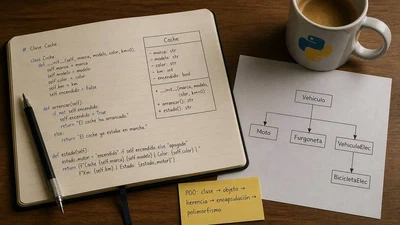 # Clase Coche
class Coche:
def __init__(self, marca, modelo, color, km=0):
self.marca = marca
self.modelo = modelo
self.color = color
self.km = km
self.encendido = False
def arrancar(self):
if not self.encendido:
self.encendido = True
return "El coche ha arrancado"
else:
return "El coche ya estaba en marcha."
def estado(self):
estado_motor = "encendido" if self.encendido else "apagado"
return (f"Coche {self.marca} {self.modelo} {self.color}
f"Km: {self.km} | Estado: {estado_motor}")
Coche
- marca: str
- modelo: str
- color: str
- km: int
- encendido: bool
+ __init__(marca, modelo,
color, km=0)
+ arrancar(): str
+ estado(): str
Vehiculo
Moto
Furgoneta
VehiculoElec
BicicletaElec
POO: clase → objeto →
herencia → encapsulación →
polimorfismo